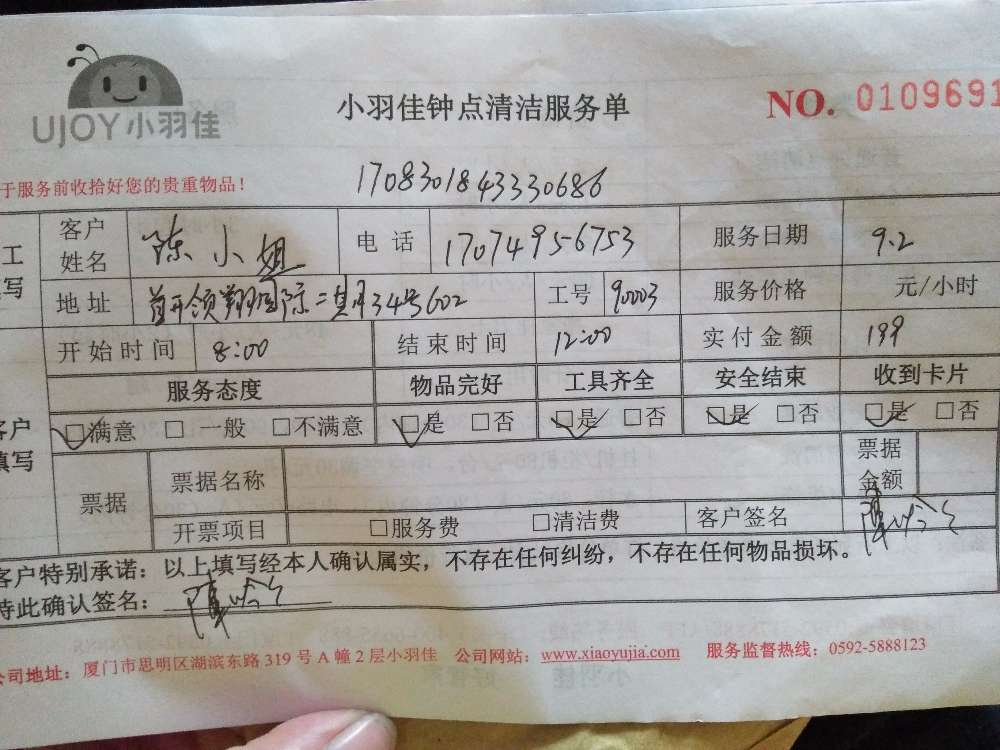 UJOY小羽佳
小羽佳钟点清洁服务单
NO. 0109691
于服务前收拾好您的贵重物品！
1708301843330686
工
写
客户姓名 陈小姐 电话 17074956753 服务日期 9.2
地址 首开领翔国际二期34号602 工号 90003 服务价格 元/小时
开始时间 8:00 结束时间 12:00 实付金额 199
客户
填写
服务态度 物品完好 工具齐全 安全结束 收到卡片
□满意 □一般 □不满意 □是 □否 □是 □否 □是 □否 □是 □否
票据 票据名称 票据金额
开票项目 □服务费 □清洁费 客户签名
客户特别承诺：以上填写经本人确认属实，不存在任何纠纷，不存在任何物品损坏。
特此确认签名：
公司地址：厦门市思明区湖滨东路319号A幢2层小羽佳 公司网站：www.xiaoyujia.com 服务监督热线：0592-5888123